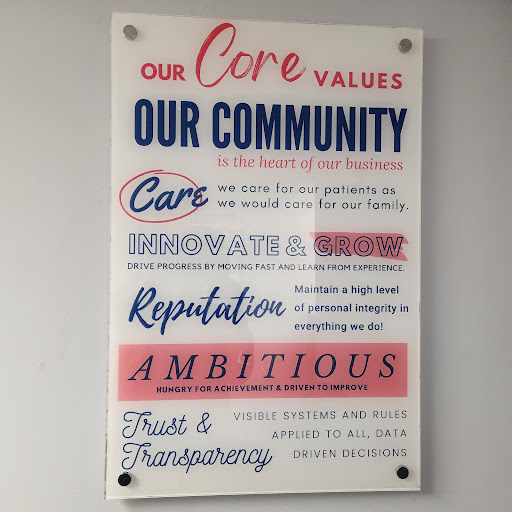 OUR Core VALUES
OUR COMMUNITY
is the heart of our business
Care we care for our patients as
we would care for our family.
INNOVATE & GROW
DRIVE PROGRESS BY MOVING FAST AND LEARN FROM EXPERIENCE.
Reputation
Maintain a high level
of personal integrity in
everything we do!
AMBITIOUS
HUNGRY FOR ACHIEVEMENT & DRIVEN TO IMPROVE
Trust &
Transparency
VISIBLE SYSTEMS AND RULES
APPLIED TO ALL, DATA
DRIVEN DECISIONS